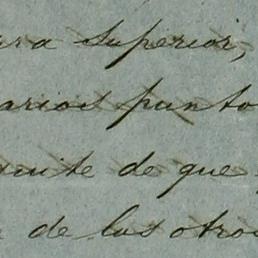 ura superior,
arios punto
mite de que
de las otro